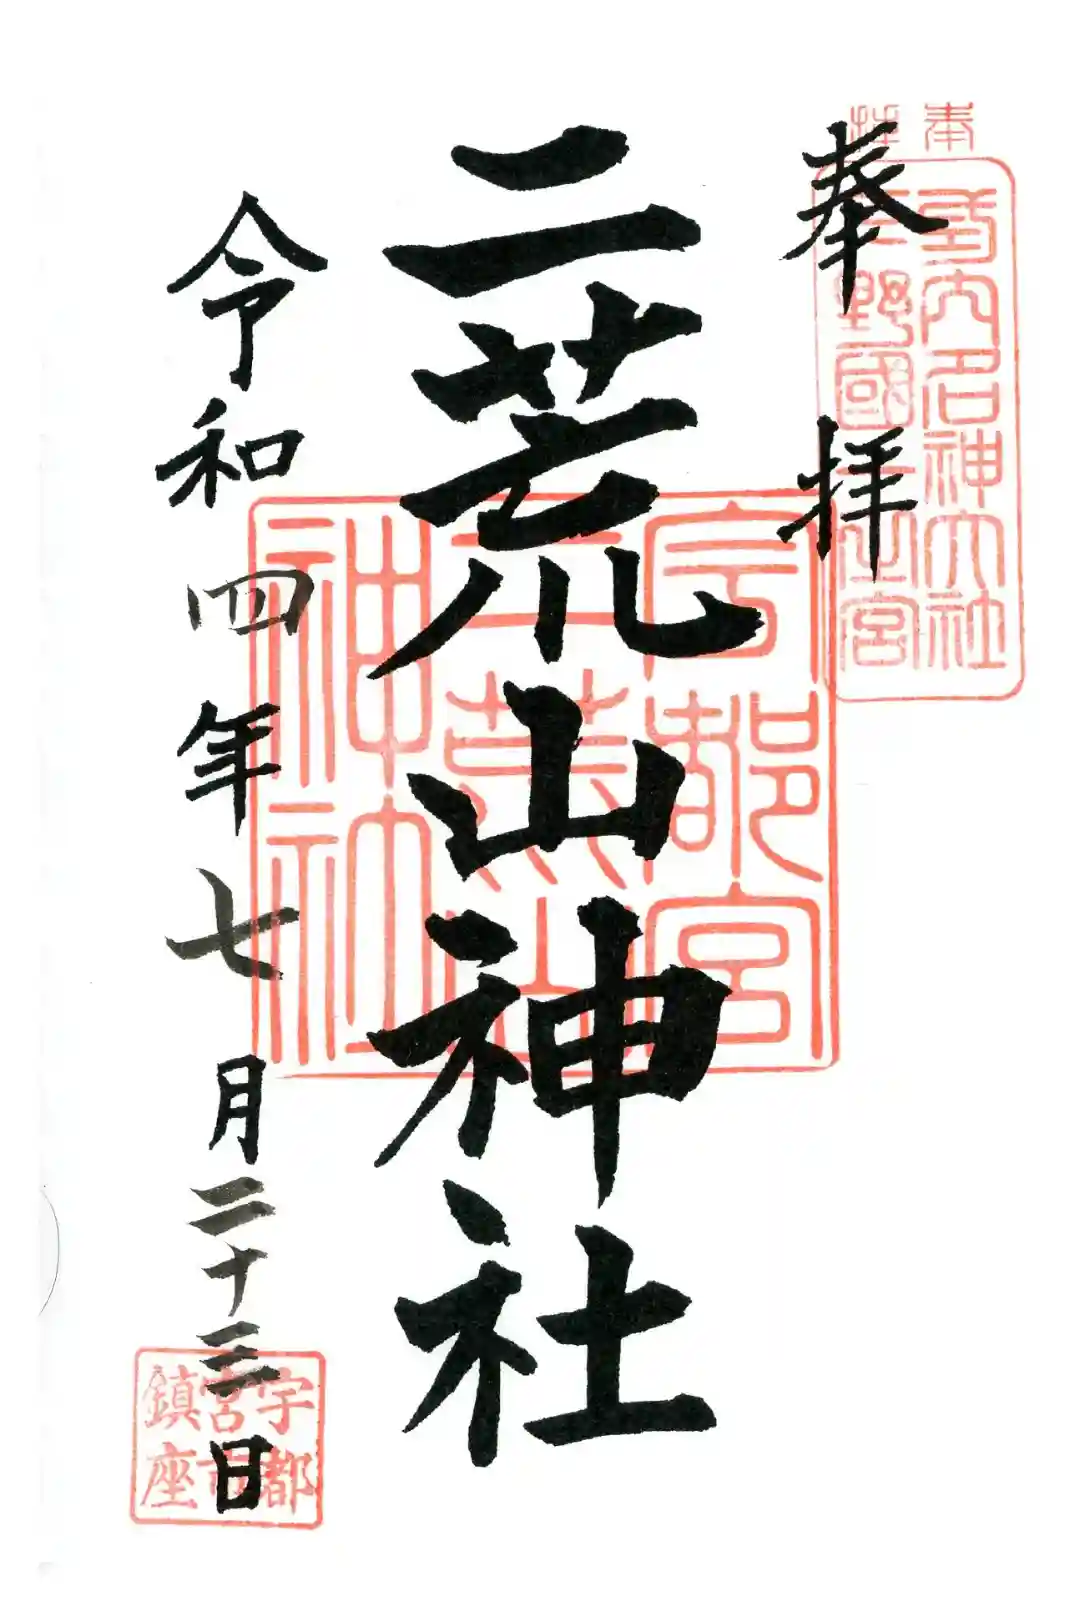 奉拝
奉拝
式内名神大社
下野國一之宮
二荒山神社
宇都宮
二荒山
神社
令和四年七月二十三日
宇都
宮市
鎮座